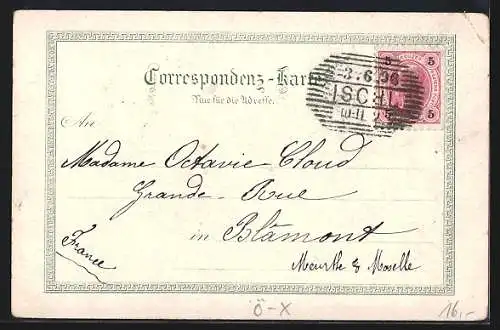 5 5
-3.6.96
ISCHL
10-11
5 5
Correspondenz-Karte
Nur für die Adresse.
An
Madame Octavie Cloud
Grande-Rue
in Blâmont
France
Meurthe & Moselle
Ö-X
16,-